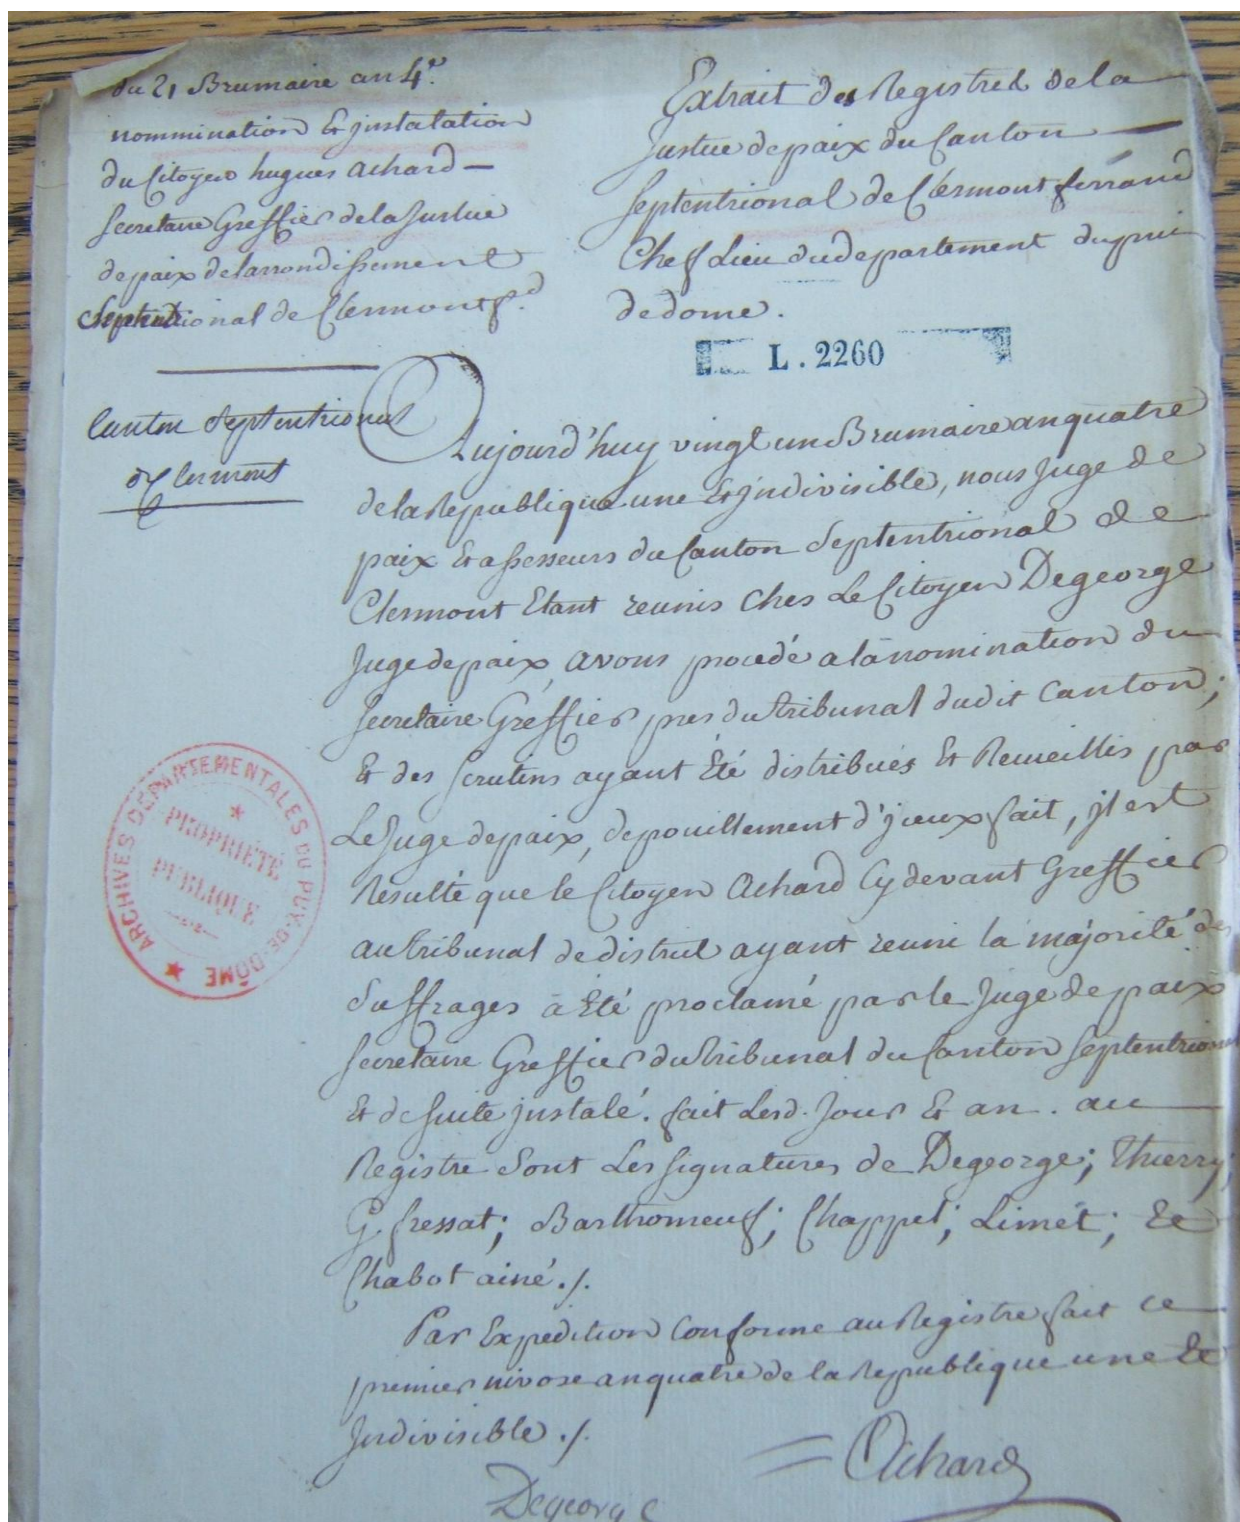 du 21 Brumaire an 4e.
nommination Et jnstalation
du Citoyen hugues Achard —
Secretaire Greffier de la Justice
de paix de larrondissement
Septentrional de Clermont f.d
Canton Septentrional
de Clermont
Extrait des Registres de la
Justice de paix du Canton —
Septentrional de Clermont ferrand
Chef Lieu du departement du pui
de dome.
L. 2260
Aujourd'huy vingt un Brumaire an quatre
de la Republique une Et jndivisible, nous Juge de
paix Et assesseurs du Canton Septentrional de
Clermont Etant reunis Ches Le Citoyen Degeorge
Juge de paix, avons procedé a la nomination du
Secretaire Gréffier pres du tribunal dudit Canton;
Et des Scrutins ayant Été distribués Et Recueillis par
Le Juge de paix, depouillement d'jceux fait, jl est
Resulté que le Citoyen Achard Cy devant Greffier
au tribunal de district ayant reuni la majorité des
Suffrages à Été proclamé par le Juge de paix
Secretaire Greffier du tribunal du Canton Septentrional
Et de Suite jnstalé. fait Lesd. Jour Et an. au
Registre Sont Les Signatures de Degeorge; Thierry;
G. fressat; Barthomeuf; Chappel; Limét; Et
Chabot ainé ./.
Par Expedition Conforme au Registre fait ce
premier nivose an quatre de la Republique une Et
Jndivisible ./.
Achard
Degeorge
ARCHIVES DÉPARTEMENTALES DU PUY-DE-DÔME
PROPRIÉTÉ
PUBLIQUE